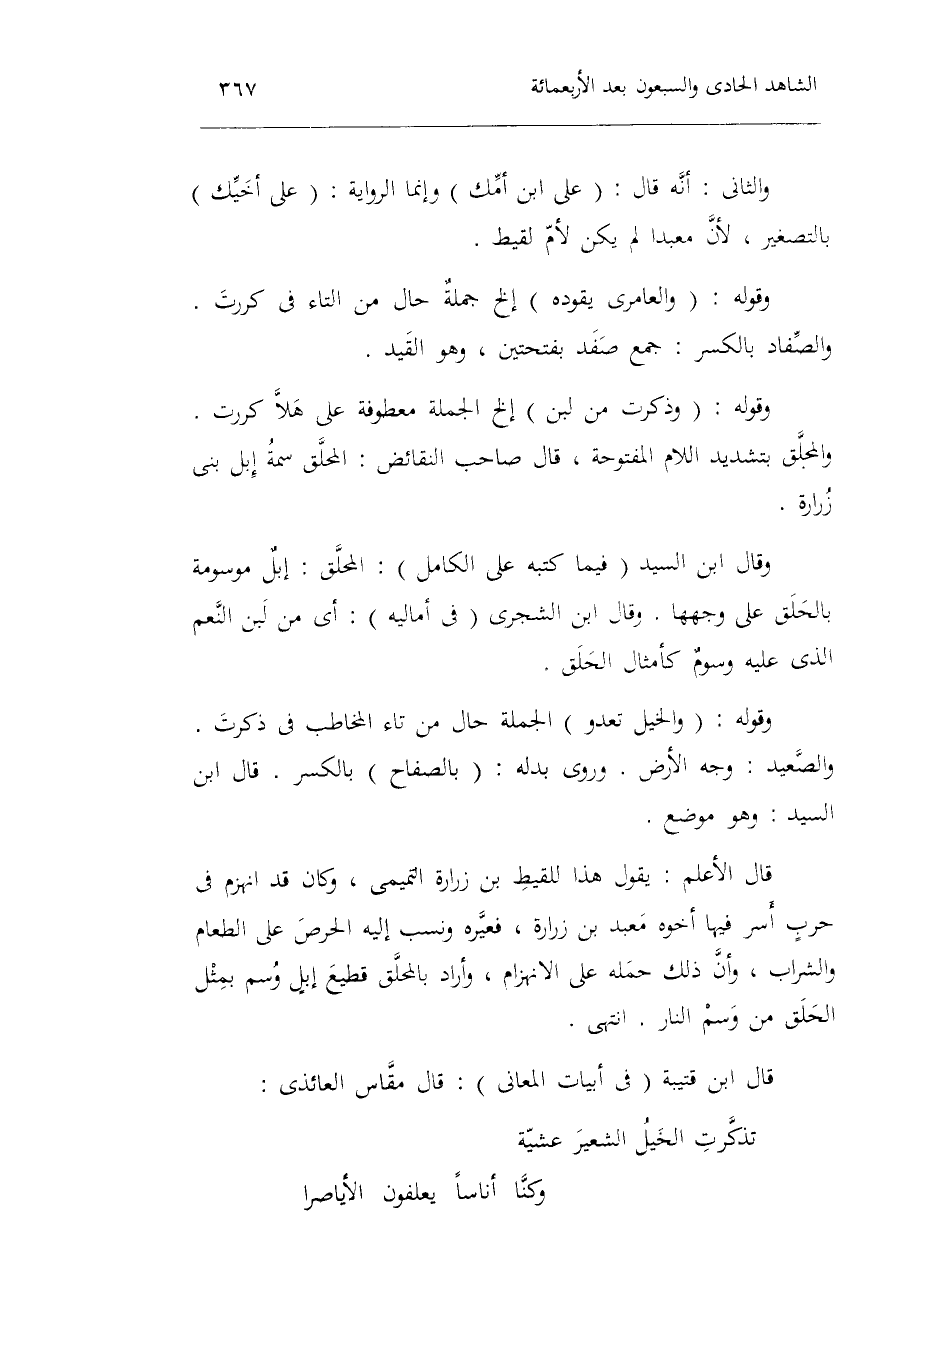 الشاهد الحادى والسبعون بعد الأربعمائة ٣٦٧
والثانى : أنَّه قال : ( على ابن أمِّك ) وإنما الرواية : ( على أخَيِّك )
بالتصغير ، لأنَّ معبدا لم يكن لأمّ لقيط .
وقوله : ( والعامرى يقوده ) إلخ جملةٌ حال من التاء فى كررتَ .
والصِّفاد بالكسر : جمع صَفَد بفتحتين ، وهو القَيد .
وقوله : ( وذكرت من لبن ) إلخ الجملة معطوفة على هَلاَّ كررت .
والمحلَّق بتشديد اللام المفتوحة ، قال صاحب النقائض : المحلَّق سمةُ إبل بنى
زُرارة .
وقال ابن السيد ( فيما كتبه على الكامل ) : المحلَّق : إبلٌ موسومة
بالحَلَق على وجهها . وقال ابن الشجرى ( فى أماليه ) : أى من لَبن النَّعم
الذى عليه وسومٌ كأمثال الحَلَق .
وقوله : ( والخيل تعدو ) الجملة حال من تاء المخاطب فى ذكرتَ .
والصَّعيد : وجه الأرض . وروى بدله : ( بالصفاح ) بالكسر . قال ابن
السيد : وهو موضع .
قال الأعلم : يقول هذا للقيطِ بن زرارة التميمى ، وكان قد انهزم فى
حربٍ أُسر فيها أخوه مَعبد بن زرارة ، فعيَّره ونسب إليه الحرصَ على الطعام
والشراب ، وأنَّ ذلك حمَله على الانهزام ، وأراد بالمحلَّق قطيعَ إبلٍ وُسم بمِثْل
الحَلَق من وَسمْ النار . انتهى .
قال ابن قتيبة ( فى أبيات المعانى ) : قال مقَّاس العائذى :
تذكَّرتِ الخَيلُ الشعيرَ عشيّة
وكنَّا أناساً يعلفون الأياصرا